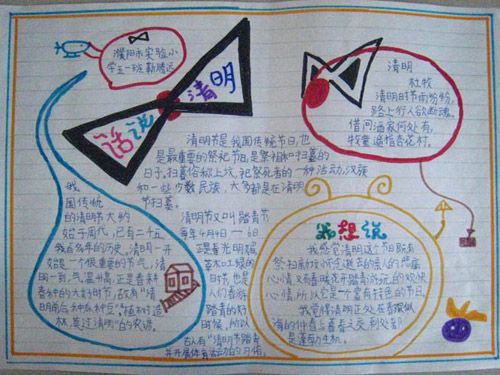 濮阳市实验小
学五一班 靳腾远
话说
清明
清明节是我国传统节日,也
是最重要的祭祀节日,是祭祖和扫墓的
日子。扫墓俗称上坟,祀祭死者的一种活动。汉族
和一些少数民族,大多都是在清明
节扫墓。
我
国传统
的清明节大约
始于周代,已有二千五
百多年的历史。清明一开
始是一个很重要的节气,清
明一到,气温升高,正是春耕
春种的大好时节,故有“清
明前后,种瓜种豆”“植树造
林,莫过清明”的农谚。
清明节又叫踏青节
每年4月4日——6日
正是春光明媚
草木吐绿的
时节,也是
人们春游
踏青的好
时候,所以
古人有“清明节踏青
并开展体育活动的习俗。
清明
杜牧
清明时节雨纷纷,
路上行人欲断魂。
借问酒家何处有,
牧童遥指杏花村。
我想说
我感觉清明这个节既有
祭扫新坟怀念逝去的亲人的
心情,又有春暖花开踏青游玩的欢快
心情,所以它是一个富有特色的节日。
我觉得清明正处在春